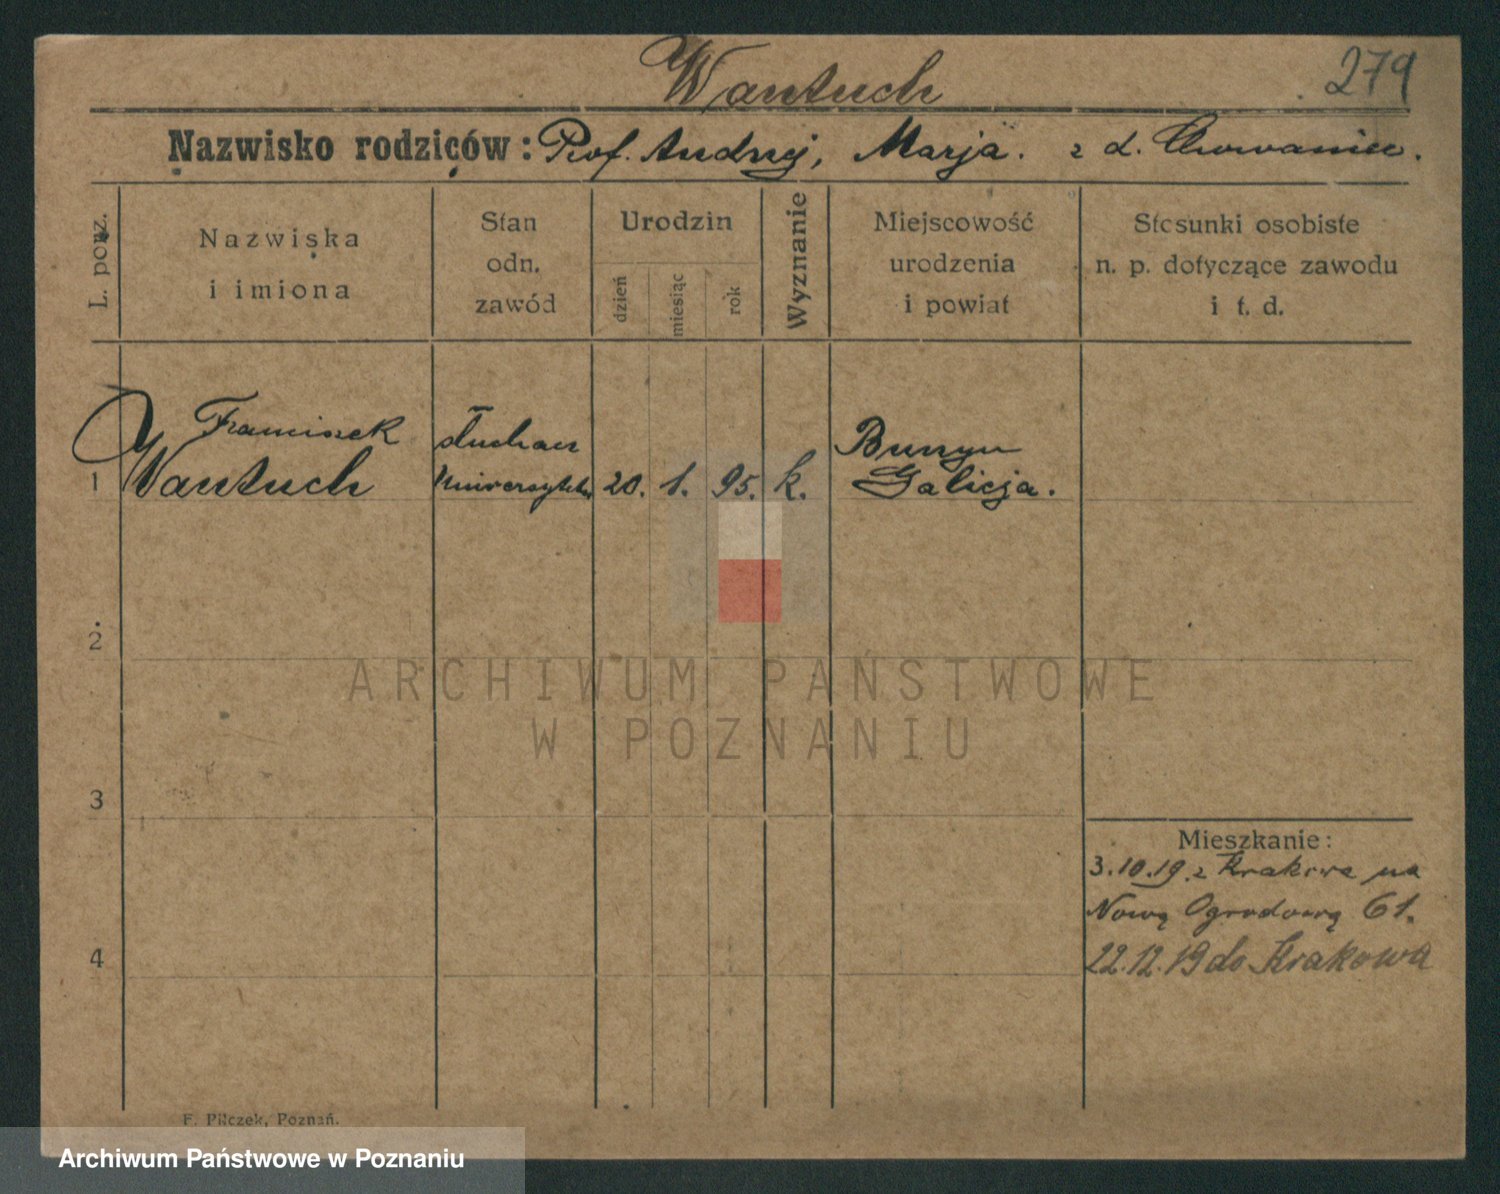 Wantuch
279
Nazwisko rodziców: Prof. Andrzej, Marja. z d. Chowaniec.
L. porz.
Nazwiska
i imiona
Stan
odn.
zawód
Urodzin
dzień
miesiąc
rok
Wyznanie
Miejscowość
urodzenia
i powiat
Stosunki osobiste
n. p. dotyczące zawodu
i t. d.
1
Franciszek
Wantuch
słuchacz
Uniwersytetu
20. 1. 95. k.
Galicja.
2
ARCHIWUM PAŃSTWOWE
W POZNANIU
3
Mieszkanie:
3.10.19. z Krakowa na
Nową Ogrodową 61.
4
22.12.19 do Krakowa
F. Pilczek, Poznań.
Archiwum Państwowe w Poznaniu